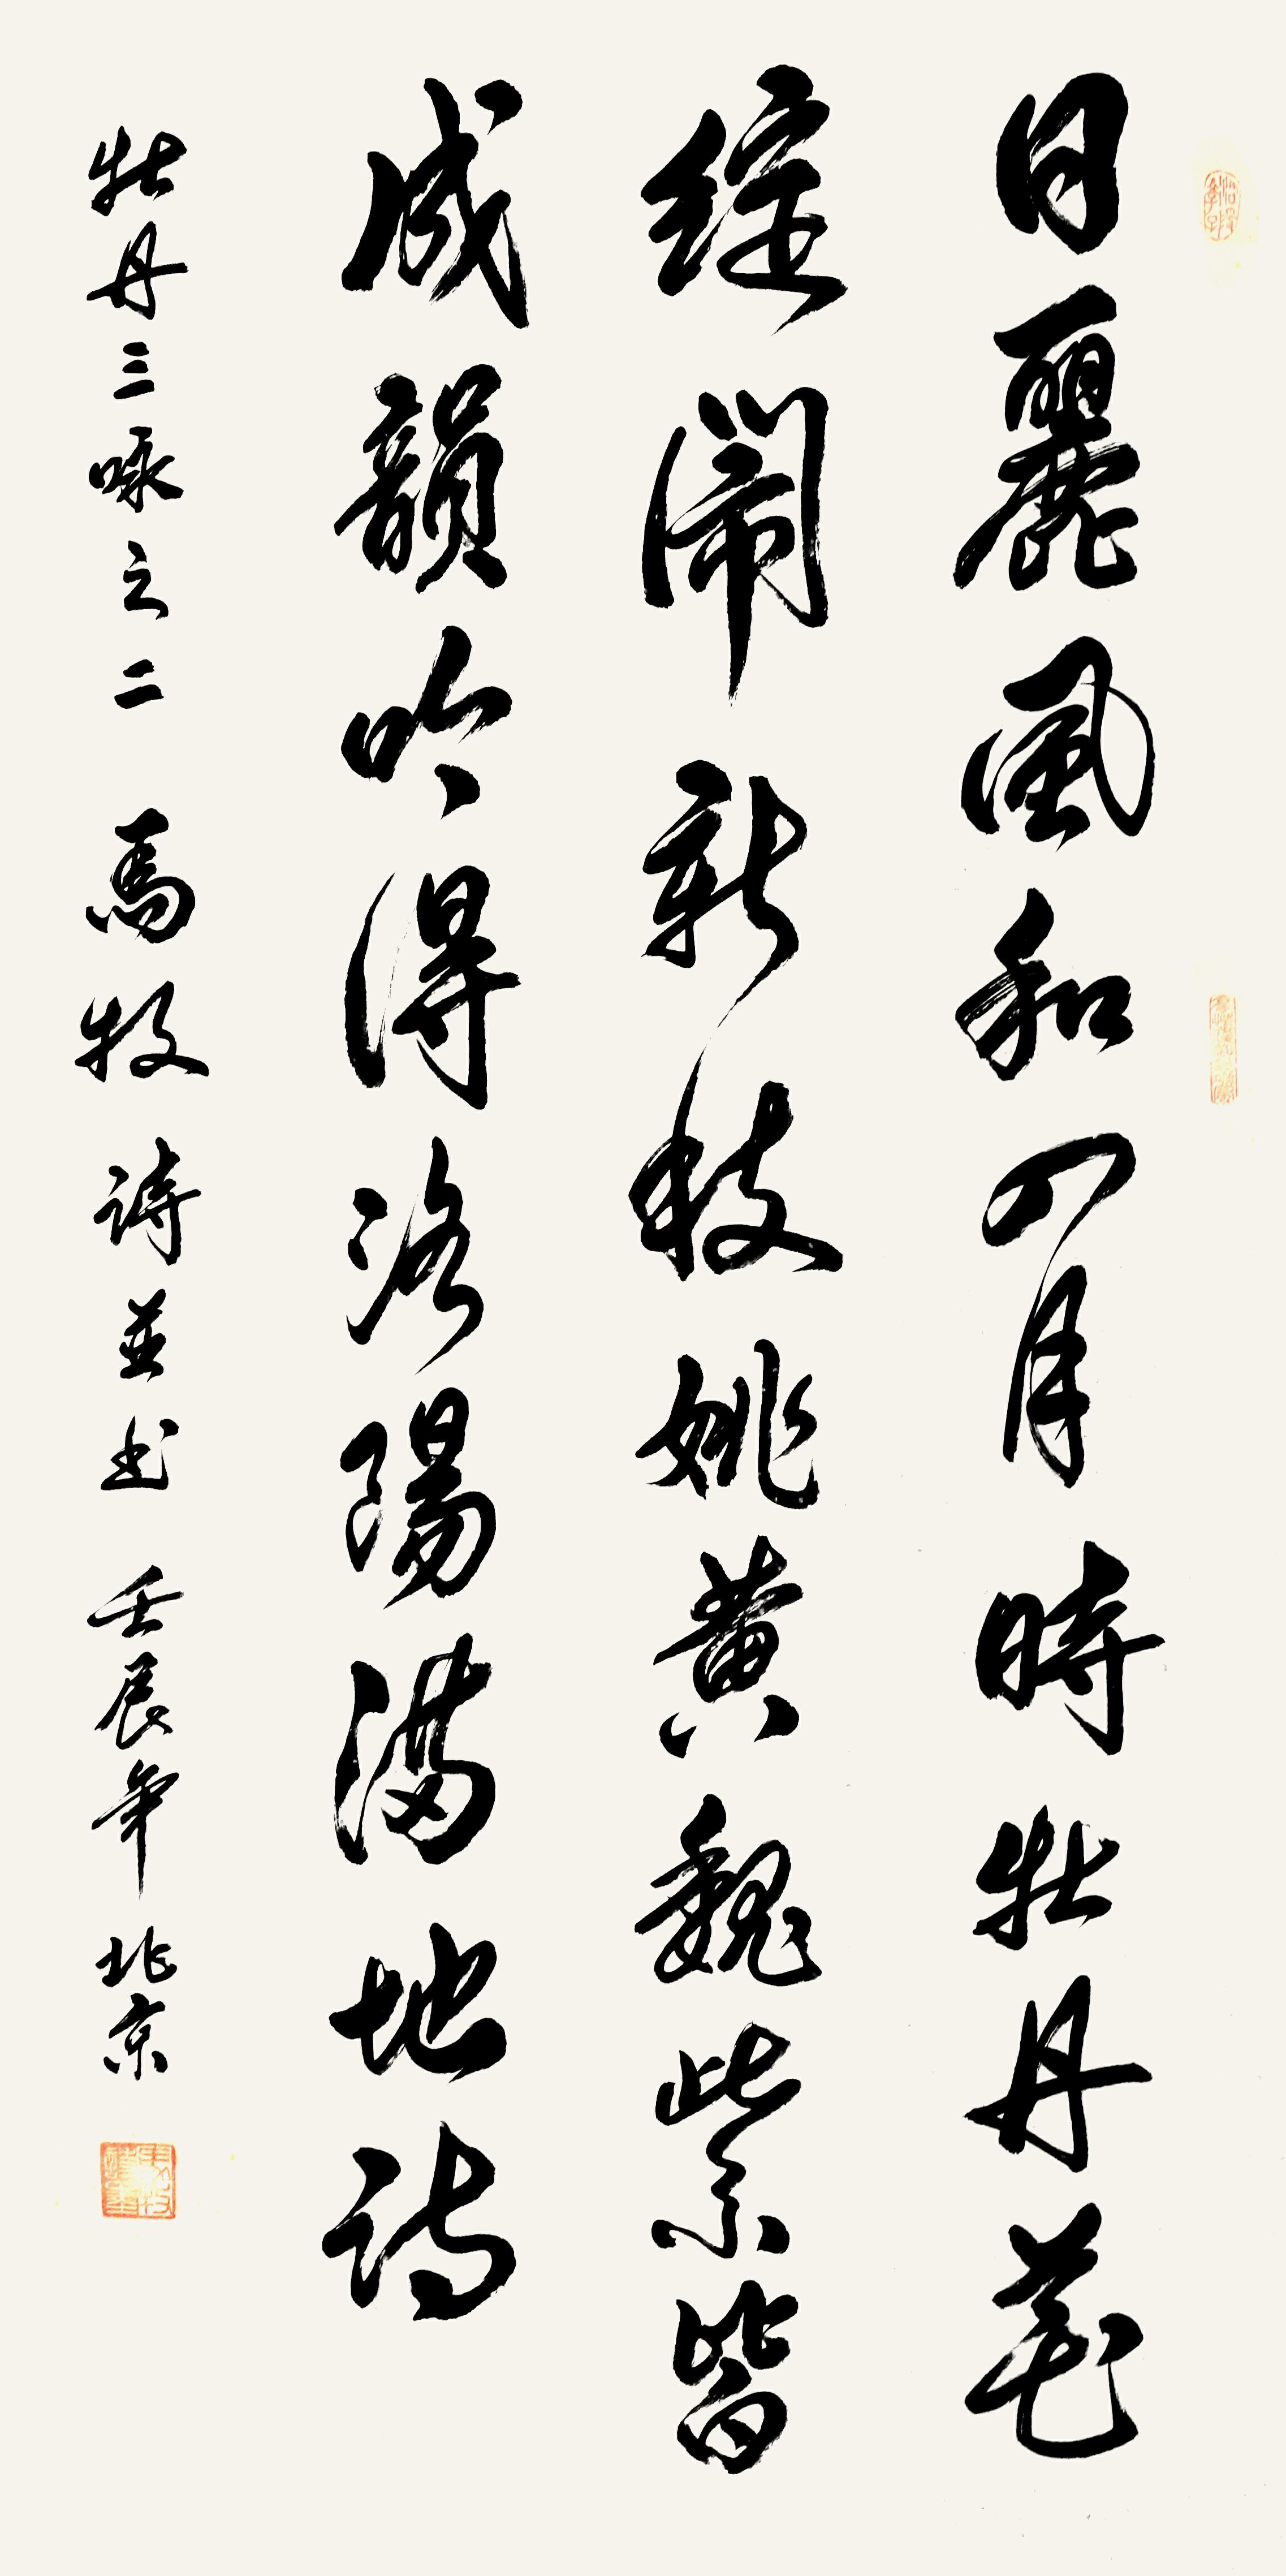 日麗風和四月時牡丹花
綻鬧新枝姚黄魏紫皆
成韻吟得洛陽滿地詩
牡丹三咏之二 馬牧 詩並书 壬辰年 北京